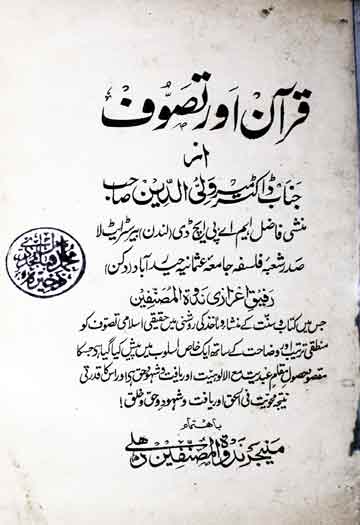 قرآن اور تصوّف
از
جناب ڈاکٹر میر ولی الدین صاحب
منشی فاضل ایم اے پی ایچ ڈی (لندن) بیرسٹر ایٹ لا
صدر شعبہ فلسفہ جامعہ عثمانیہ حیدرآباد (دکن)
رفیق اعزازی ندوۃ المصنفین
جس میں کتاب و سنت کے منشا و ماخذ کی روشنی میں حقیقی اسلامی تصوف کو
منطقی ترتیب و وضاحت کے ساتھ ایک خاص اسلوب میں پیش کیا گیا ہے جس کا
مقصود حصول مقام عبدیت مع الالوہیت اور یافت و شہود حق ہے اور اس کا قدرتی
نتیجہ محویت فی الحق اور یافت و شہود حق و خلق!
باہتمام
منیجر ندوۃ المصنفین دہلی